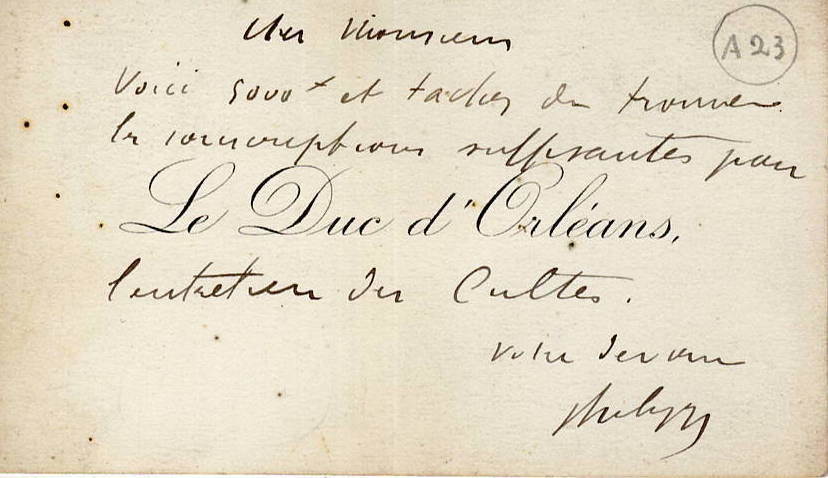 A 23
Cher Monsieur
Voici 5000 f et tachez de trouver
les souscriptions suffisantes pour
Le Duc d'Orléans,
l'entretien des Cultes.
votre dévoué
Philippe